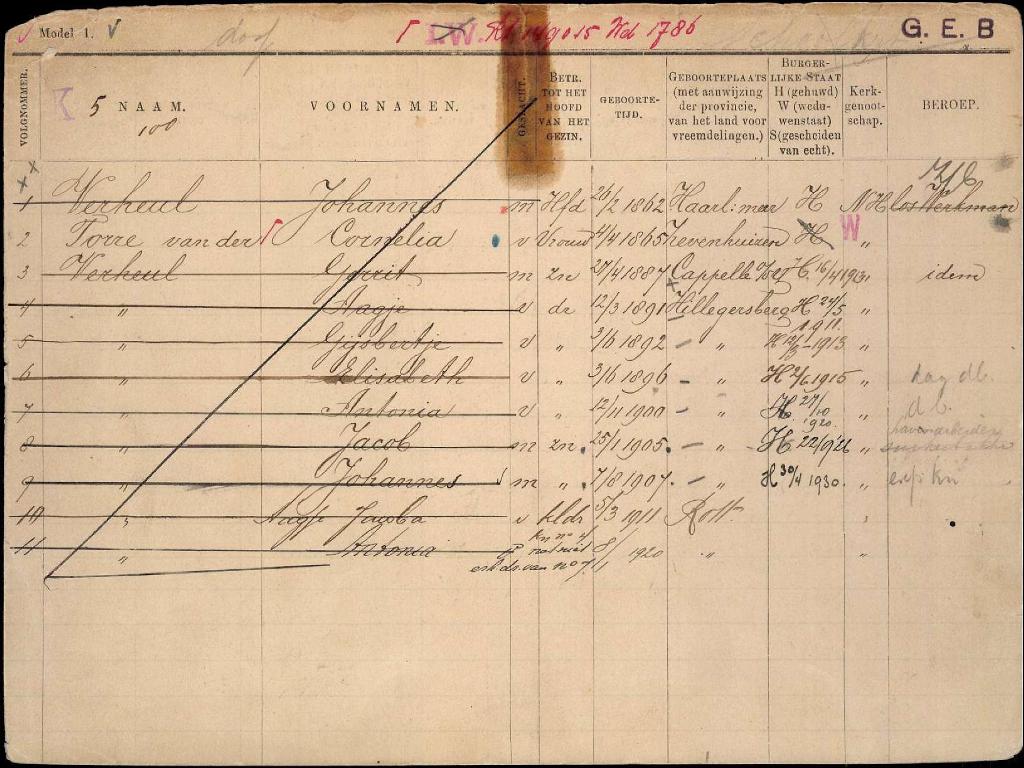 Model 1. V doof G. E. B
VOLGNOMMER. 5 NAAM. 100 VOORNAMEN. GESLACHT. BETR. TOT HET HOOFD VAN HET GEZIN. GEBOORTE-TIJD. GEBOORTEPLAATS (met aanwijzing der provincie, van het land voor vreemdelingen.) BURGER-LIJKE STAAT H (gehuwd) W (weduwenstaat) S (gescheiden van echt). Kerk-genoot-schap. BEROEP.
1 Verheul Johannes m Hfd 26/2 1862 Haarl:meer H NH los Werkman
2 Torre van der Cornelia v Vrouw 4/4 1865 Zevenhuizen H W „
3 Verheul Gerrit m zn 27/4 1887 Cappelle H 16/4 1913 „ idem
4 „ Aagje v dr 12/3 1891 Hillegersberg H 24/5 1911. „
5 „ Gijsbertje v „ 3/6 1892 – „ H 12/3 – 1913 „
6 „ Elisabeth v „ 3/6 1896 – „ H 2/6 1915 „ dag db.
7 „ Antonia v „ 12/11 1900 – „ H 27/10 1920. „ d b.
8 „ Jacob m zn. 25/1 1905. – „ H 22/9 '26 „ havenarbeider
9 „ Johannes m „ 7/8 1907. – „ H 30/4 1930. „
10 „ Aagje Jacoba v kldr 5/3 1911 Rott. „
kn no 4
11 „ Antonia v nat niet 8/1 1920 „ „
erk ds. van no 7.